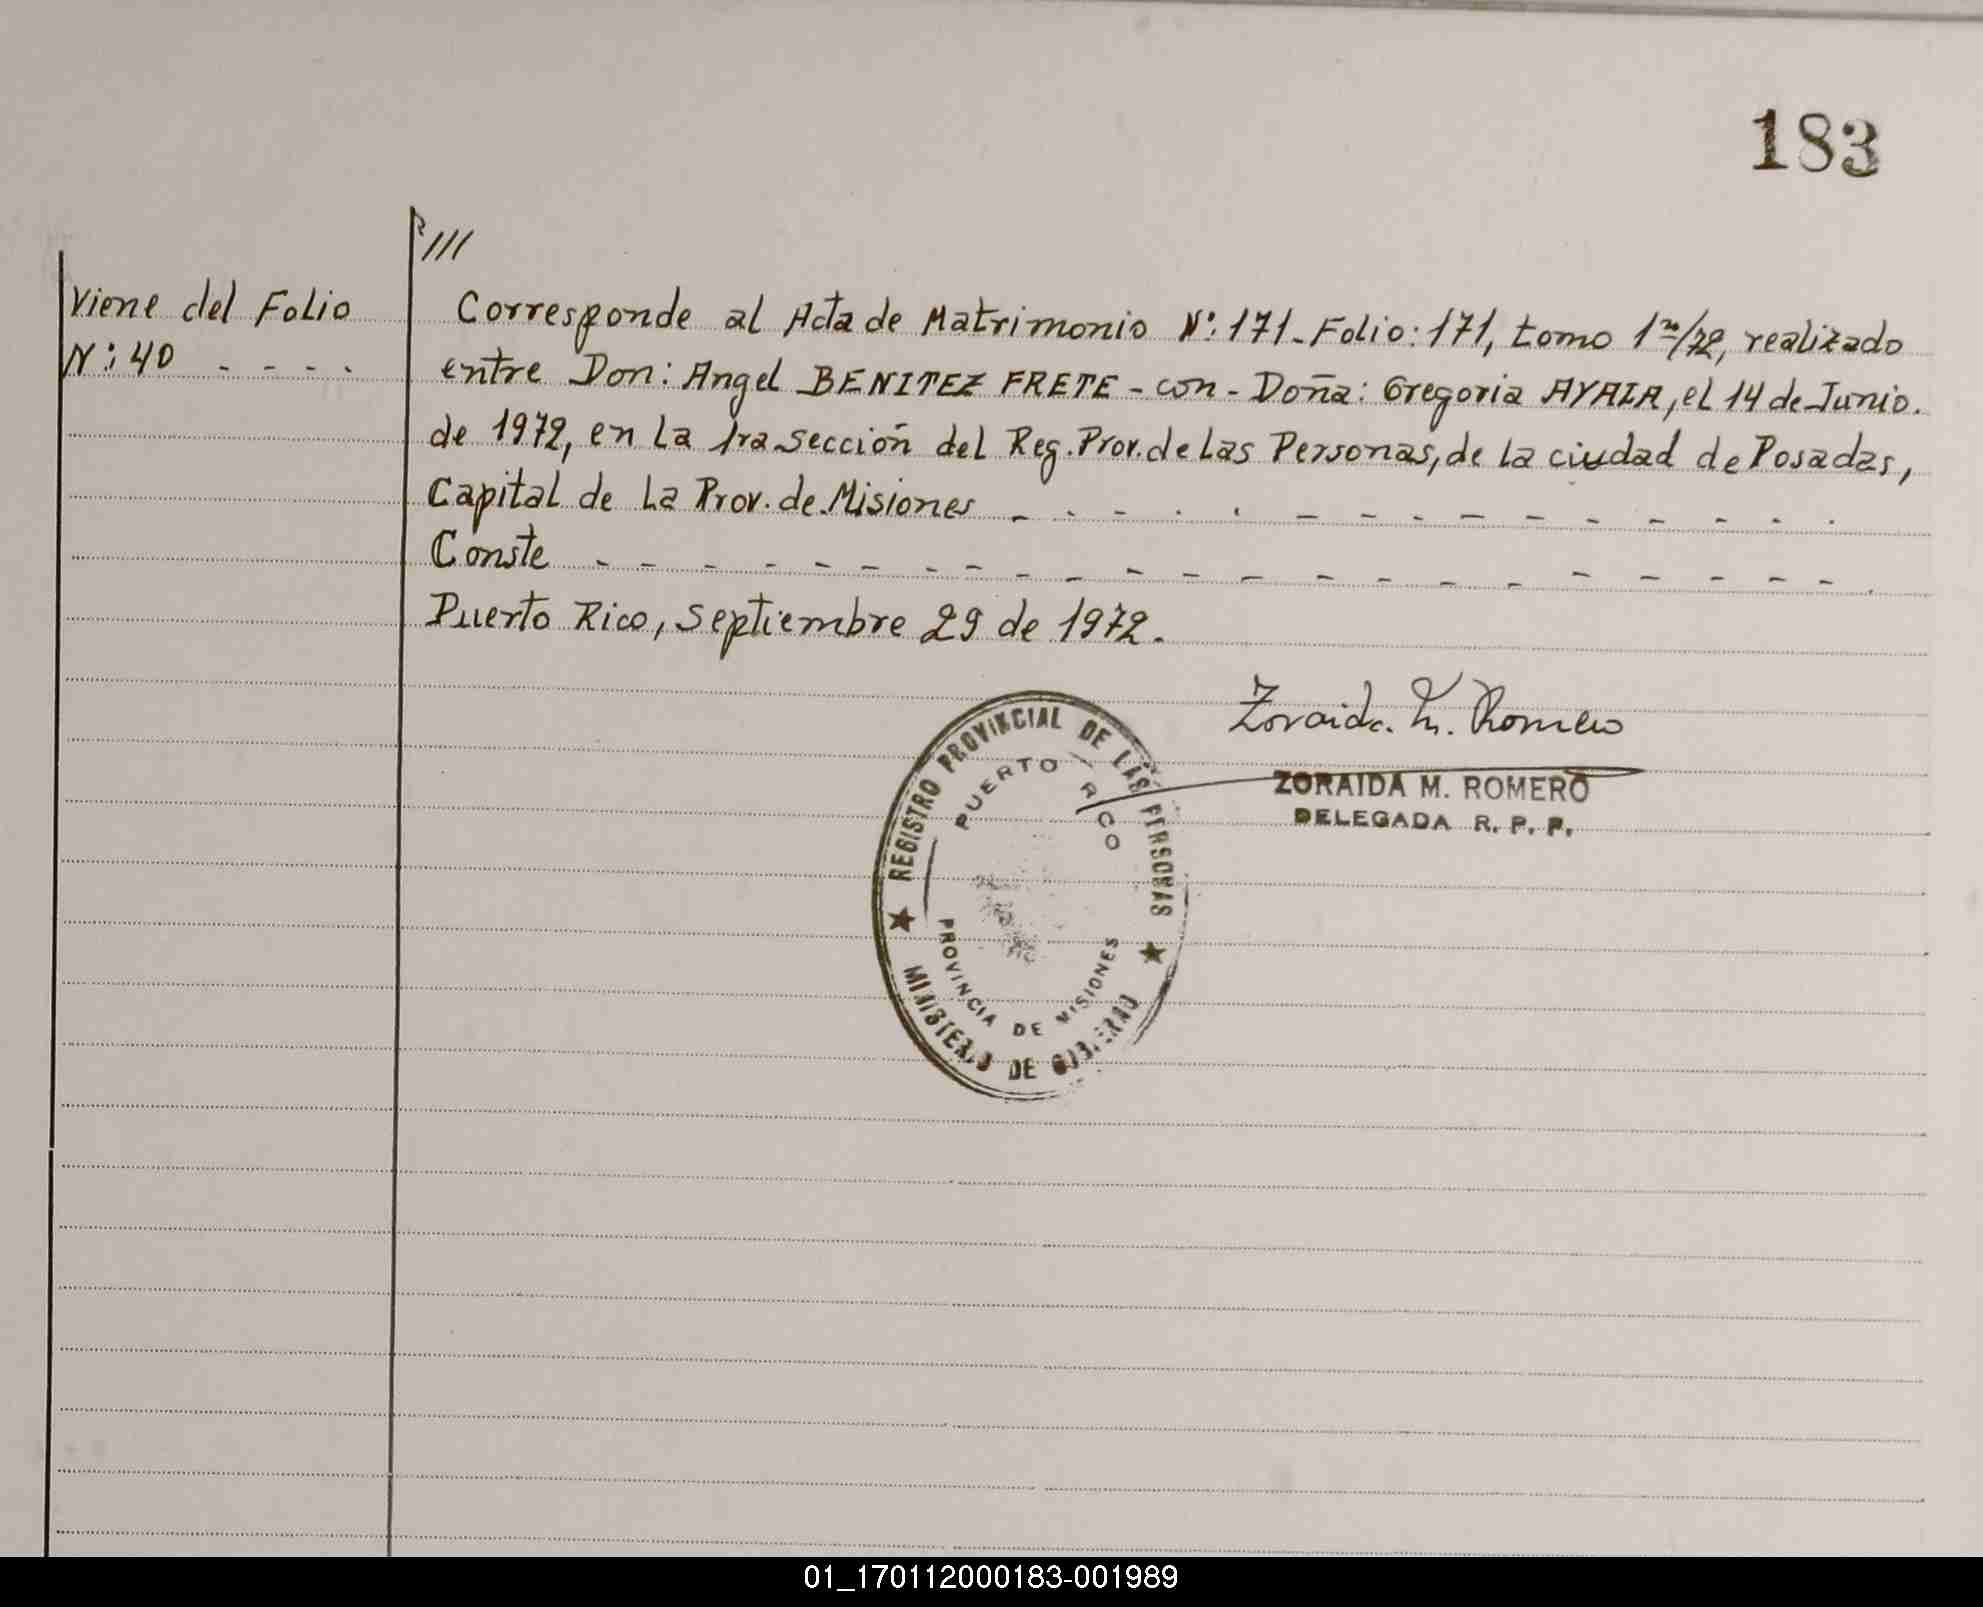 183
///
Viene del Folio
N°: 40 - - - -
Corresponde al Acta de Matrimonio N°: 171 - Folio: 171, tomo 1ro/72, realizado
entre Don: Angel BENITEZ FRETE - con - Doña: Gregoria AYALA, el 14 de Junio.
de 1972, en La 1ra sección del Reg. Prov. de Las Personas, de La ciudad de Posadas,
Capital de La Prov. de Misiones - - - - - - - - - - - - - -
Conste - - - - - - - - - - - - - - - - - - - - -
Puerto Rico, Septiembre 29 de 1972.
Zoraida M. Romero
ZORAIDA M. ROMERO
DELEGADA R. P. P.
REGISTRO PROVINCIAL DE LAS PERSONAS
PUERTO RICO
PROVINCIA DE MISIONES
MINISTERIO DE GOBIERNO
01_170112000183-001989